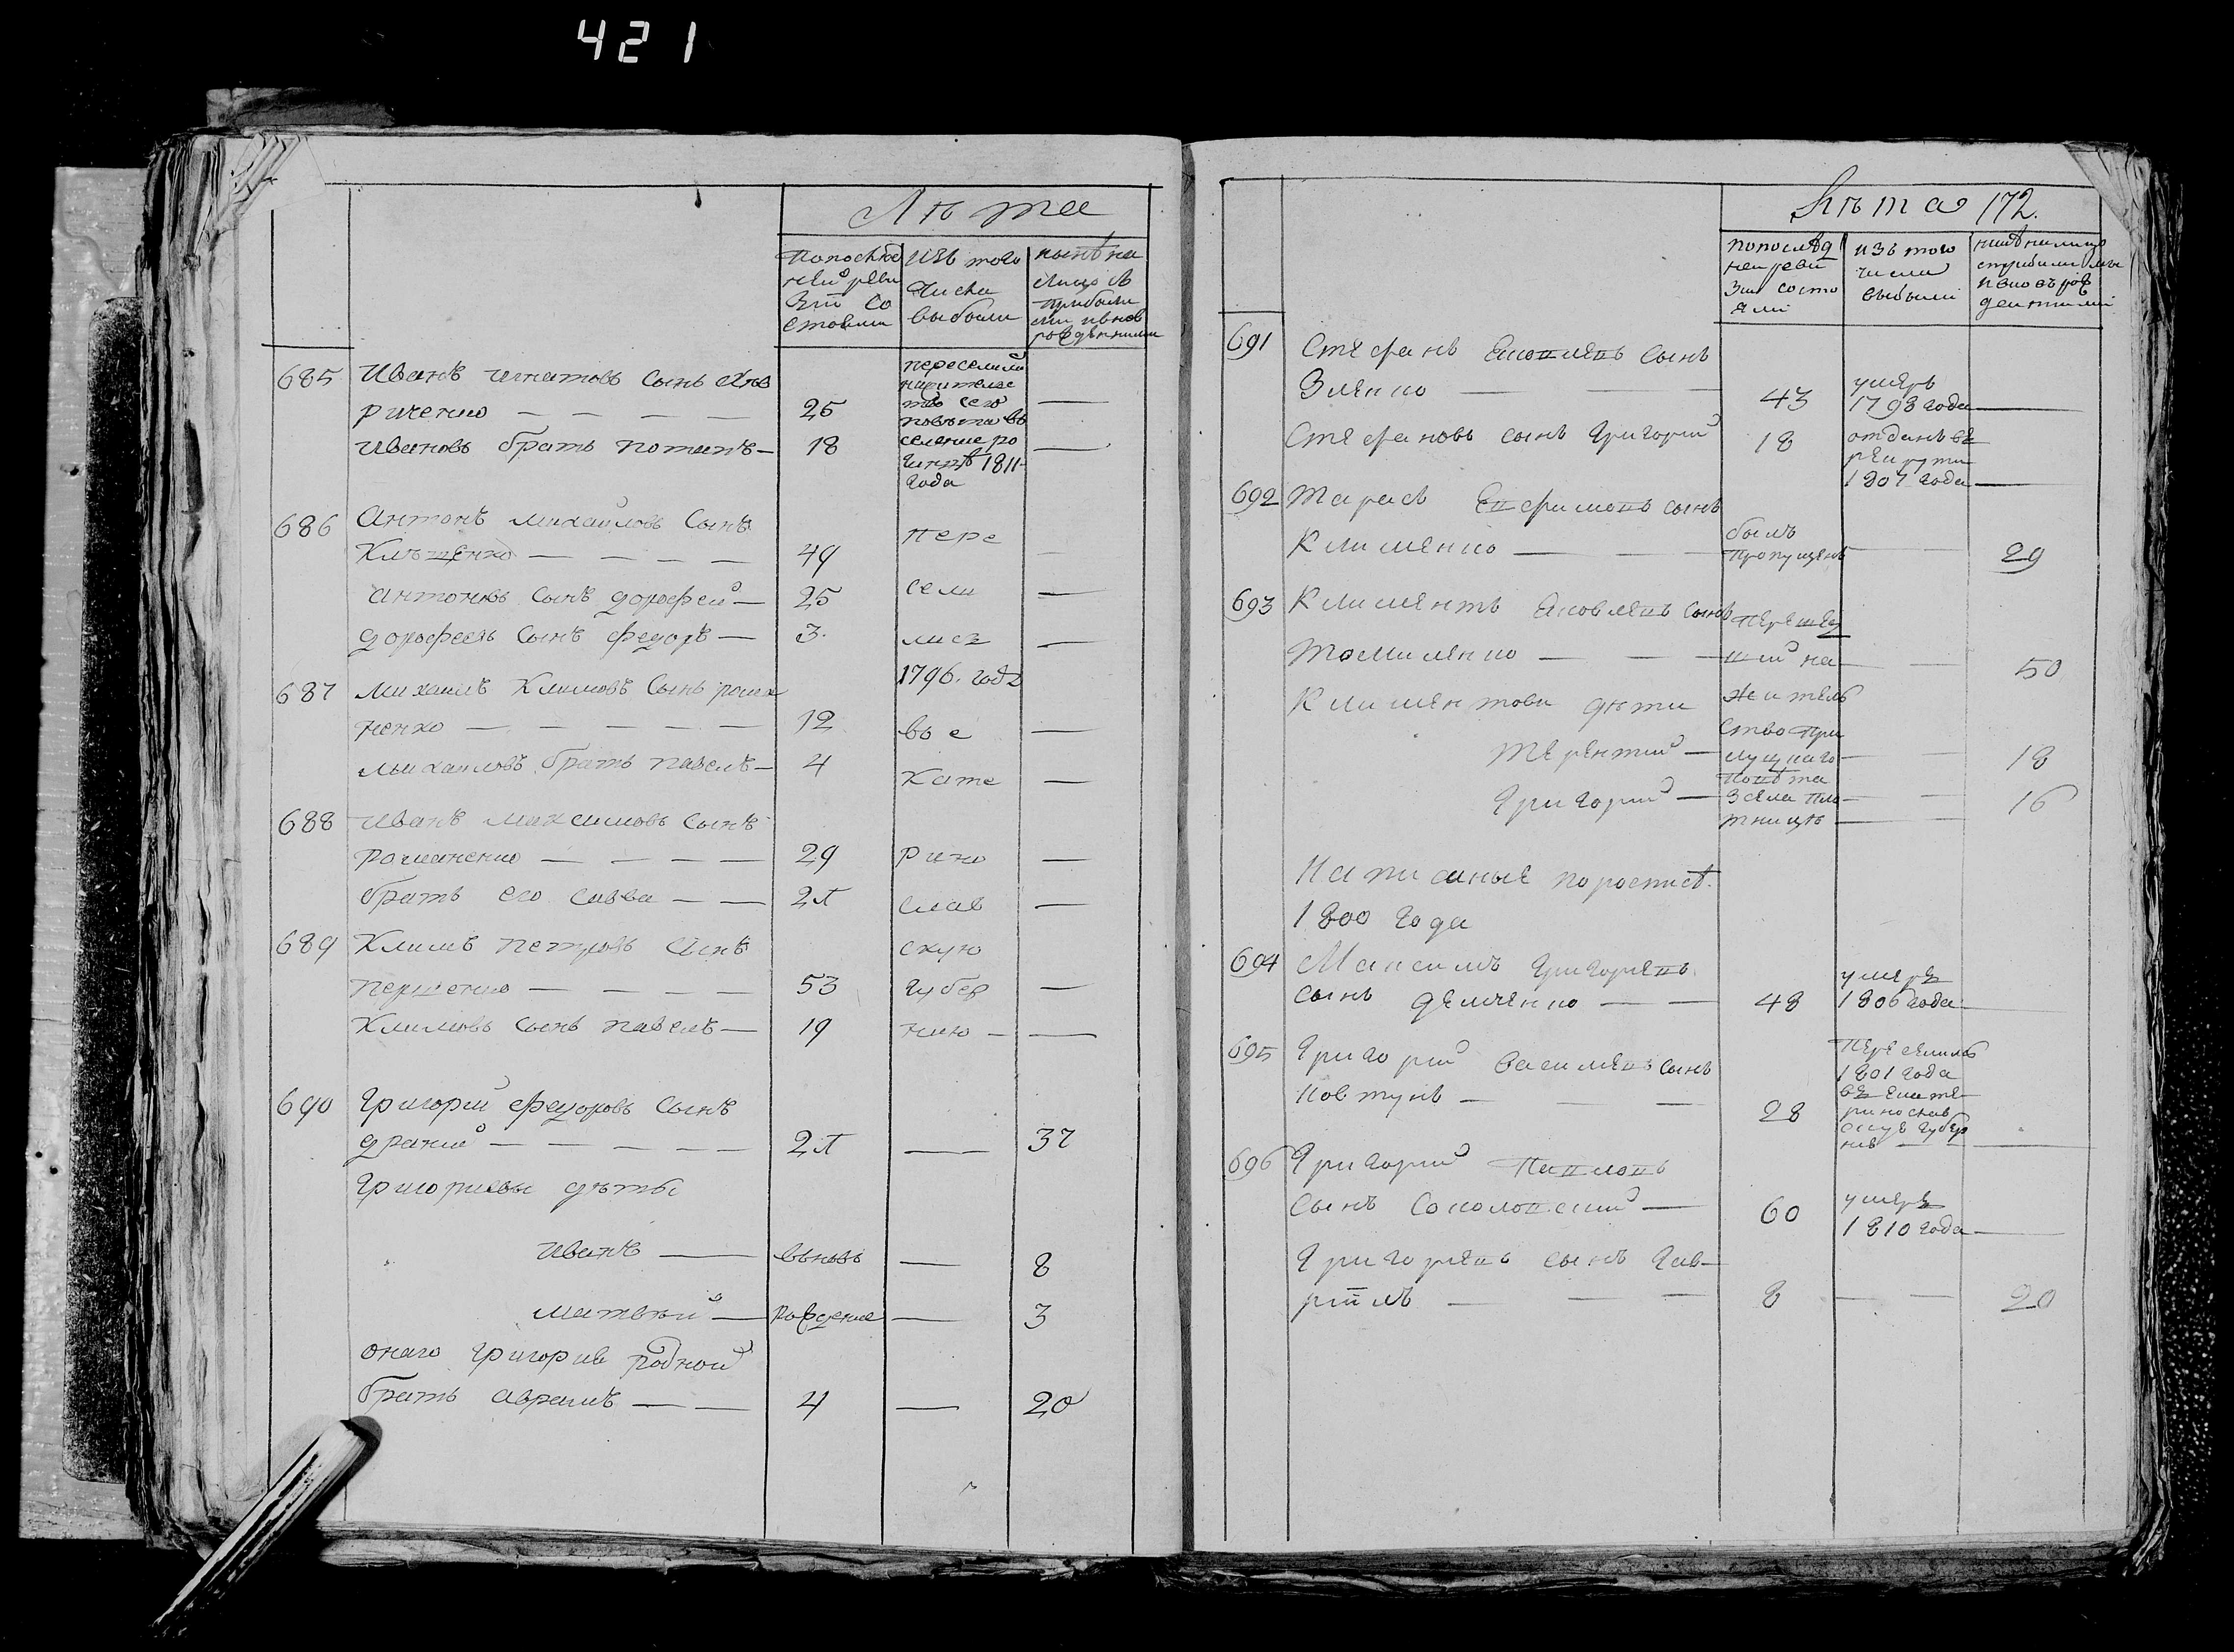 421
Лѣта
Попослѣд
ней реви
зіи со
стояли
изъ того
числа
выбыли
нынѣ на
лицо съ
прибыли
ми ивнов
рожденними
685 Иванъ игнатовъ сынъ
риченко — — — — 25 —
Ивановъ братъ потапъ — 18 —
пересели
нажителс
тво сего
повѣта въ
селение ро
1811
года
686 Антонъ михайловъ Сынъ
— — — 49 пере —
антоновъ сынъ дорофей — 25 сели —
дорофеевъ сынъ федоръ — 3. лисъ —
1796. году
687 михаилъ Климовъ Сынъ рома
ненко — — — — — 12 вое —
михаиловъ братъ павелъ — 4 Кате —
688 иванъ максимовъ сынъ
романенко — — — — 29 рино —
братъ его савва — — 21 слав —
689 Климъ петровъ сынъ скую
першенко — — — — 53 губер —
Климовъ сынъ павелъ — 19 нию — —
690 Григорий федоровъ Сынъ
драний — — — — — 21 — 37
Григориевы дѣты
иванъ — вьновь — 8
матвѣй — рождение — 3
онаго григория родной
братъ аврамъ — — 4 — 20
Лѣта 172.
попослѣд
ней реви
зіи состо
яли
изъ того
числа
выбыли
нинѣ налицо
сприбилими
ивновьрож
денними
691 Стефанъ Яковлевъ сынъ
Зленко — — 43 умеръ
1798 года —
Стефановъ сынъ Григорий 18 отданъ въ
рекруты
1807 года —
692 Тарасъ Ефимовъ сынъ
Клименко — — былъ
пропущенъ — 29
693 Климентъ Яковлевъ сынъ перешед
Томиленко — — — ший на — — 50
Климентови дѣти жителъ
ство при
Терентий — луцкаго — — 18
повѣта
Григорий — — — 16
—
Написаные поросписѣ.
1800 года
694 Максимъ Григориевъ
сынъ демченко — — 48 умеръ
1806 года —
695 Григорий василиевъ сынъ
Ковтунъ — — — 28
Переселилъ
1801 года
въ екате
ринослав
скую губер
нию —
696 Григорий Павловъ
сынъ Соколовский — 60 умеръ
1810 года —
Григориевъ сынъ Гав—
риилъ — — — 8 — — 20